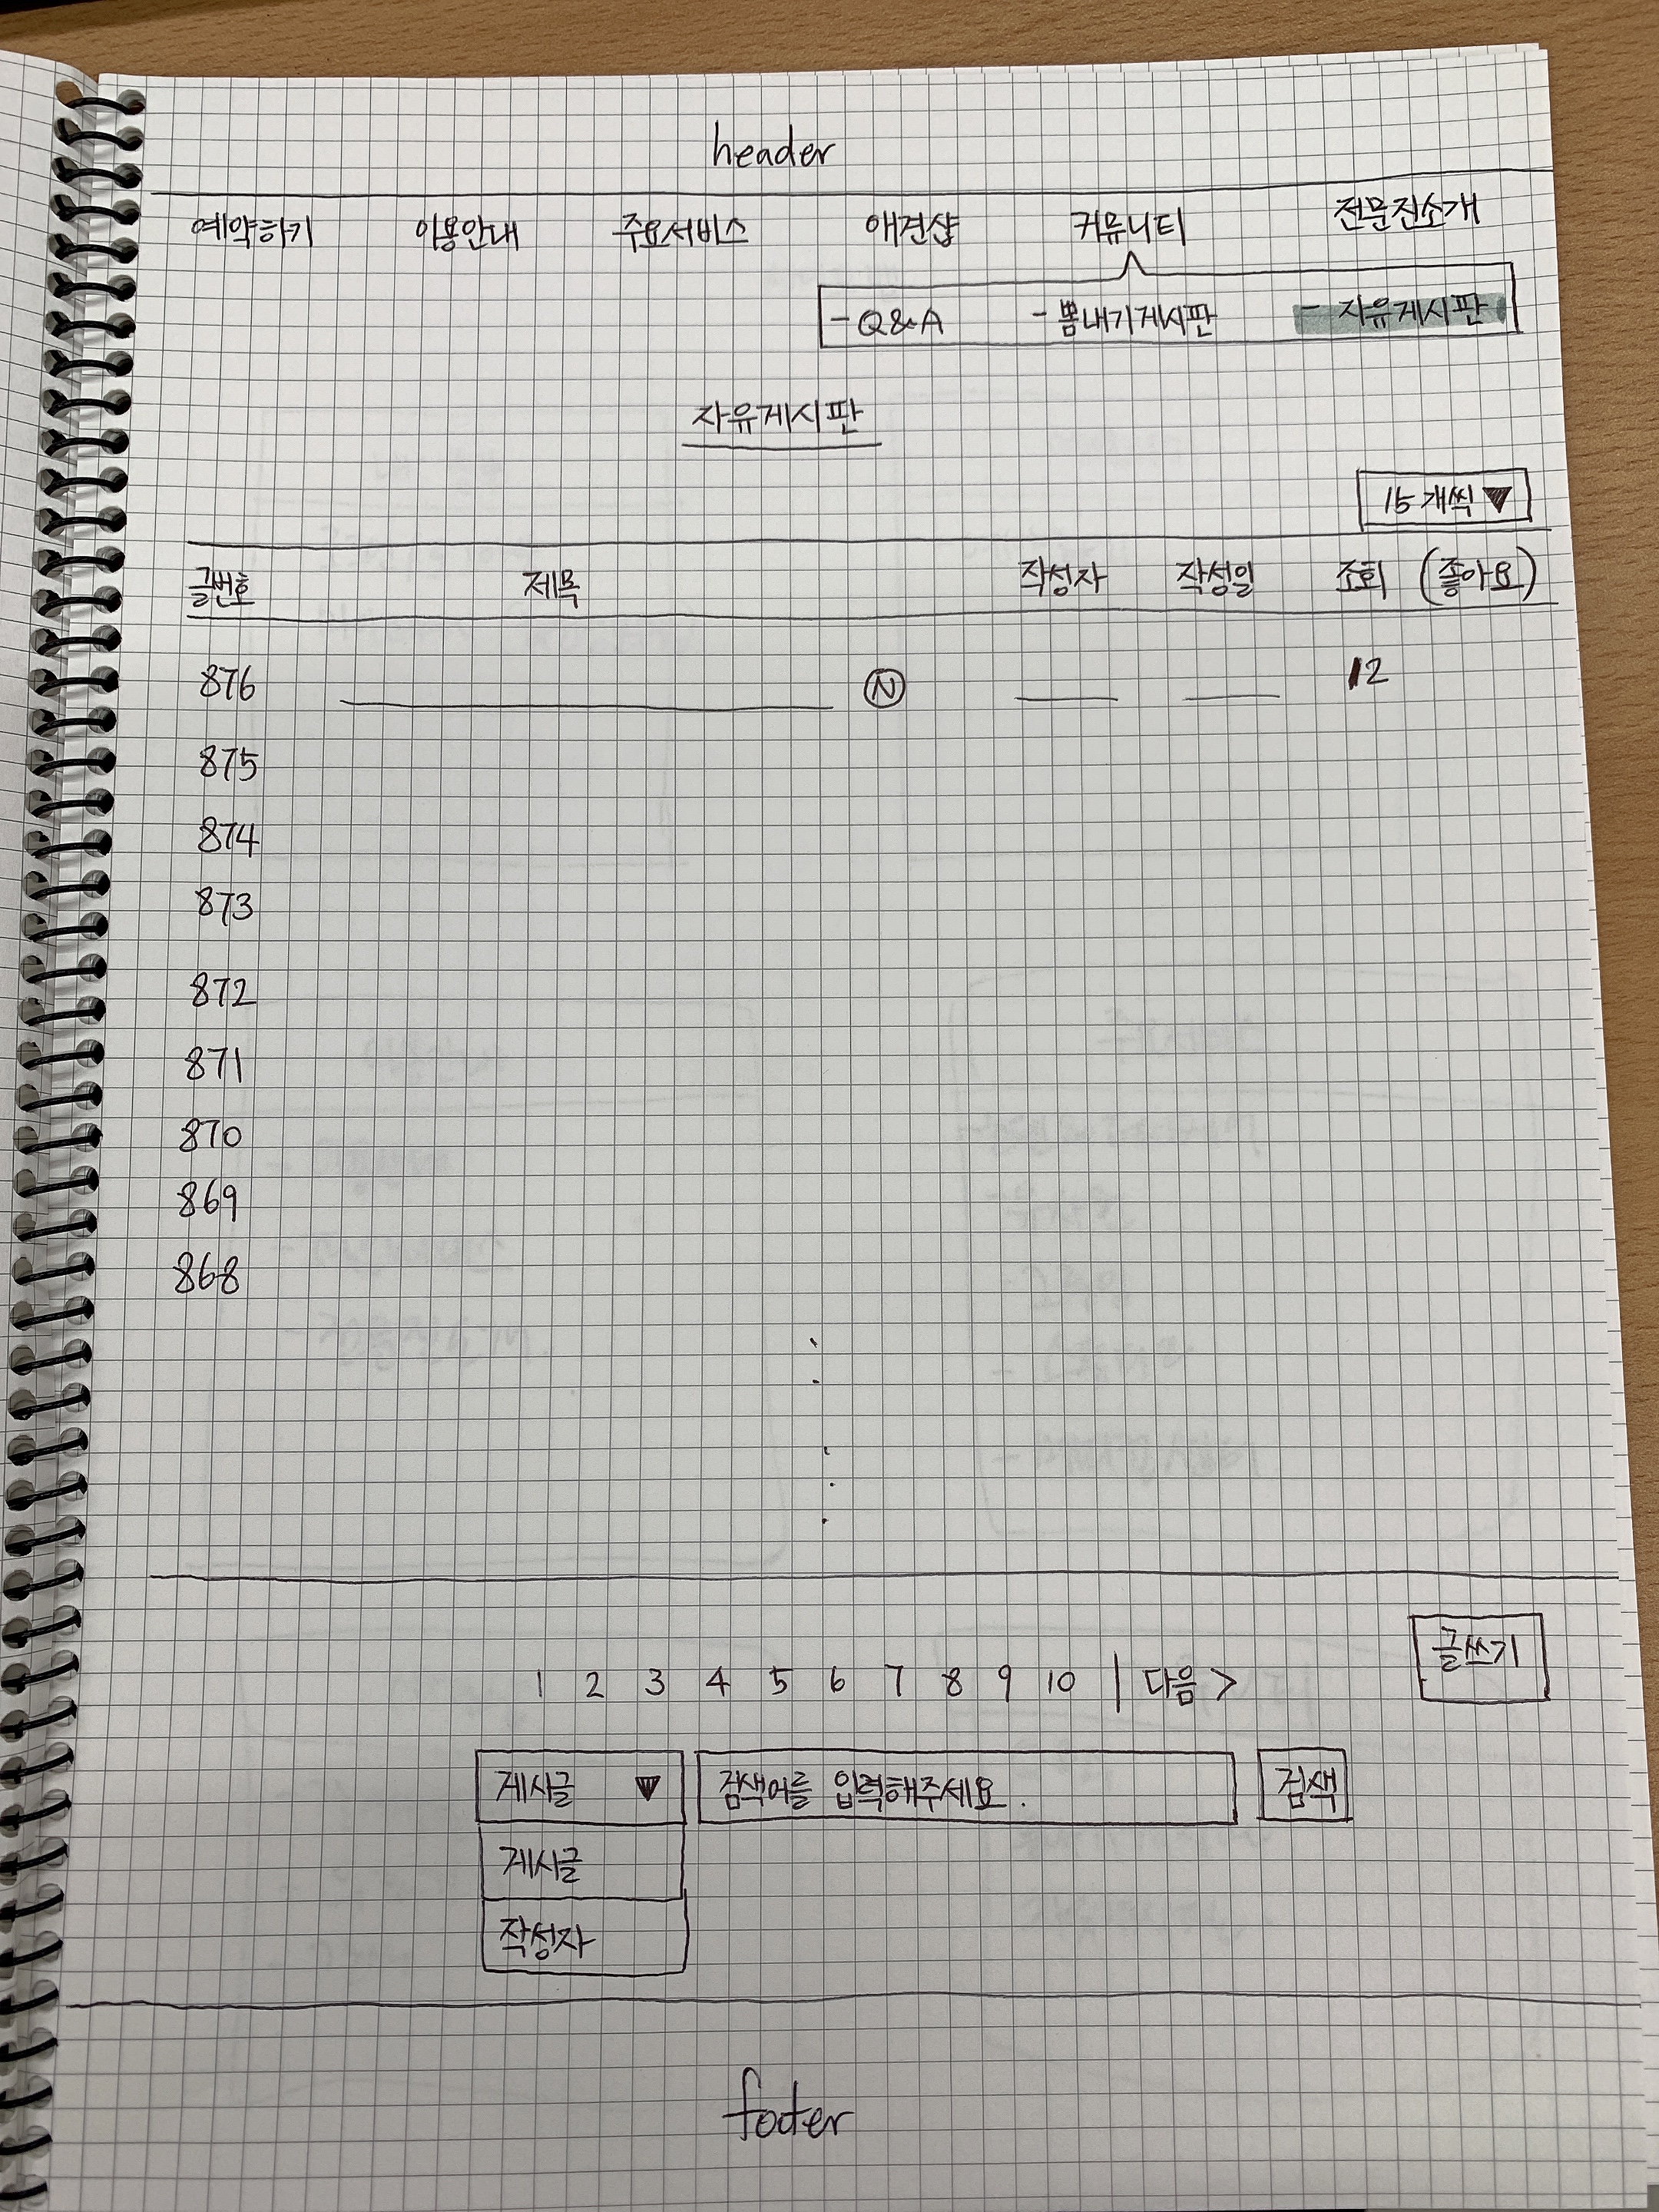 header
예약하기 이용안내 주요서비스 애견샵 커뮤니티 전문진소개
- Q&A - 뽐내기게시판 - 자유게시판
자유게시판
15개씩 ▼
글번호 제목 작성자 작성일 조회 (좋아요)
876 N 12
875
874
873
872
871
870
869
868
글쓰기
1 2 3 4 5 6 7 8 9 10 | 다음 >
게시글 ▼ 검색어를 입력해주세요. 검색
게시글
작성자
footer